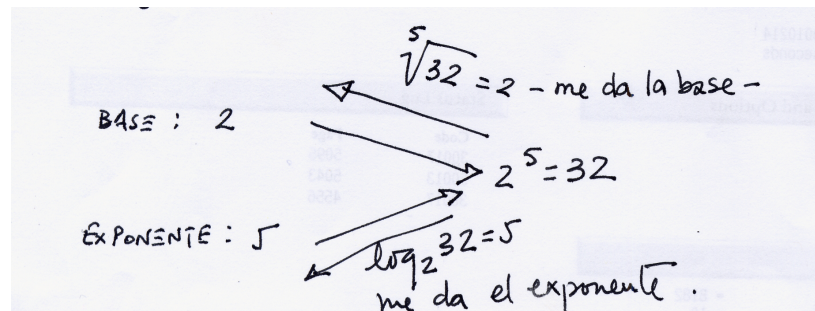 ⁵√32 = 2 – me da la base –
BASE : 2
2⁵ = 32
EXPONENTE : 5
log₂ 32 = 5
me da el exponente.